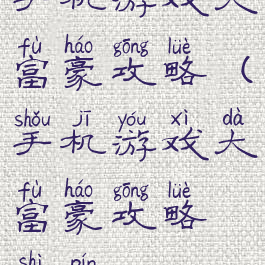 手机游戏大
fù háo gōng lüè
富豪攻略（
shǒu jī yóu xì dà
手机游戏大
fù háo gōng lüè
富豪攻略
shì pín